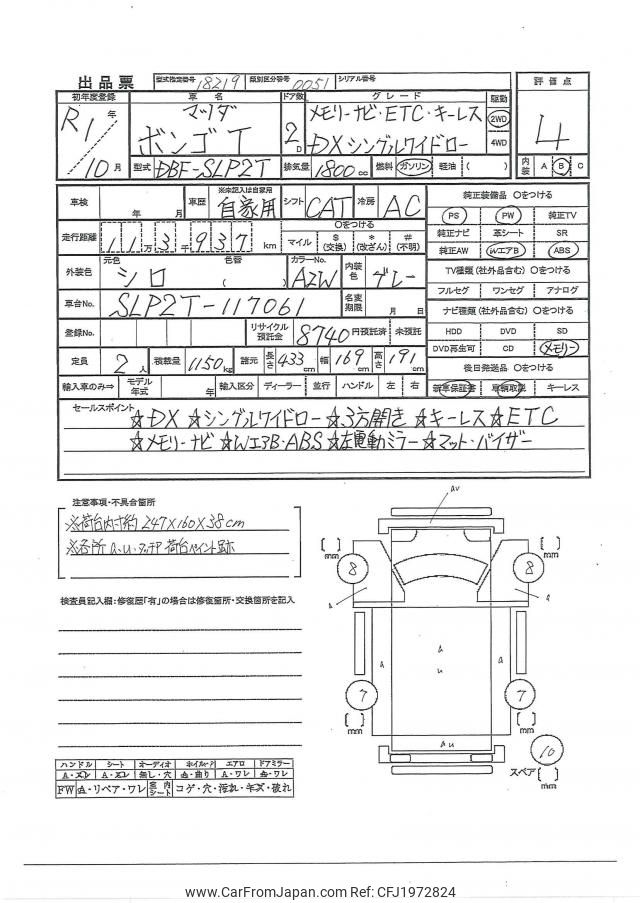 出品票 型式指定番号 18219 類別区分番号 0051 シリアル番号
初年度登録 車名 ドア数 グレード 駆動 評価点
R1年 マツダ メモリーナビ・ETC・キーレス 2WD 4
ボンゴT 2D DXシングルワイドロー 4WD
10月 型式 DBF-SLP2T 排気量 1800cc 燃料 ガソリン 軽油 ( ) 内装 A B C
車検 年 月 車歴 ※未記入は自家用 自家用 シフト CAT 冷房 AC 純正装備品 ○をつける
PS PW 純正TV
走行距離 11万3千937km ○をつける マイル $(交換) *(改ざん) #(不明) 純正ナビ 革シート SR
純正AW WエアB ABS
外装色 元色 シロ 色替 ( ) カラーNo. A2W 内装色 グレー TV種類(社外品含む) ○をつける
フルセグ ワンセグ アナログ
車台No. SLP2T-117061 名変期限 月 日 ナビ種類(社外品含む) ○をつける
登録No. リサイクル預託金 8740円預託済 未預託 HDD DVD SD
DVD再生可 CD メモリー
定員 2人 積載量 1150kg 諸元 長さ 433cm 幅 169cm 高さ 191cm 後日発送品 ○をつける
輸入車のみ⇒ モデル年式 年 輸入区分 ディーラー 並行 ハンドル 左 右 新車保証書 車輌取説 キーレス
セールスポイント ☆DX ☆シングルワイドロー ☆3方開き ☆キーレス ☆ETC
☆メモリーナビ ☆WエアB・ABS ☆左電動ミラー ☆マット・バイザー
注意事項・不具合箇所
※荷台内寸約247×160×38cm
※各所 a.u.タッチア 荷台ペイント跡
検査員記入欄:修復歴「有」の場合は修復箇所・交換箇所を記入
au
[ ]mm 8 8 [ ]mm
a a
a a u a
7 7
[ ]mm [ ]mm
au
10
スペア[ ]mm
ハンドル シート オーディオ ホイルキャップ エアロ ドアミラー
A・スレ A・スレ 無し・穴 A・曲り A・ワレ A・ワレ
FW A・リペア・ワレ 室内シート コゲ・穴・汚れ・キズ・破れ
www.CarFromJapan.com Ref: CFJ1972824